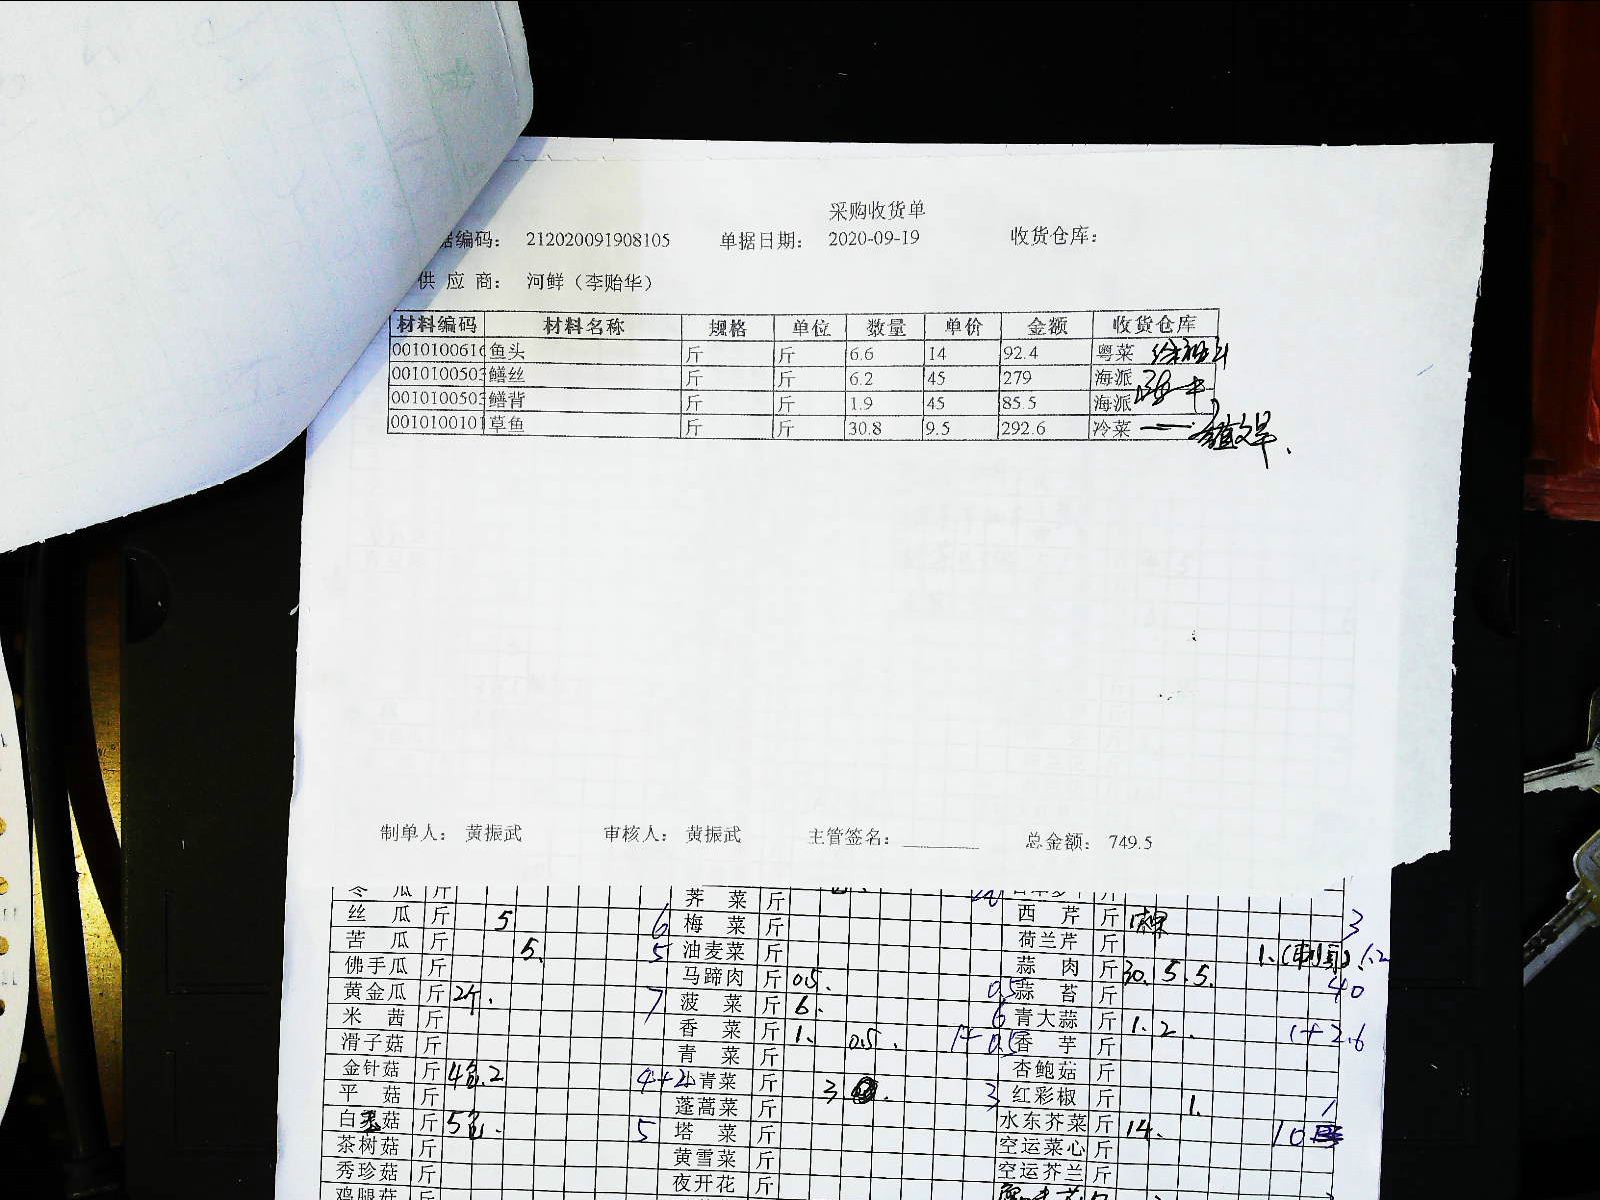 采购收货单
据编码： 212020091908105 单据日期： 2020-09-19 收货仓库：
供 应 商： 河鲜（李贻华）
材料编码 材料名称 规格 单位 数量 单价 金额 收货仓库
0010100616 鱼头 斤 斤 6.6 14 92.4 粤菜
0010100503 鳝丝 斤 斤 6.2 45 279 海派
0010100503 鳝背 斤 斤 1.9 45 85.5 海派
0010100101 草鱼 斤 斤 30.8 9.5 292.6 冷菜
制单人： 黄振武 审核人： 黄振武 主管签名： 总金额： 749.5
冬 瓜 斤 荠 菜 斤 斤
丝 瓜 斤 5 6 梅 菜 斤 西 芹 斤 3
苦 瓜 斤 5. 5 油麦菜 斤 荷兰芹 斤 1.
佛手瓜 斤 马蹄肉 斤 0.5. 0.5 蒜 肉 斤 30. 5. 5. 40
黄金瓜 斤 2斤. 7 菠 菜 斤 6. 6 蒜 苔 斤
米 茜 斤 香 菜 斤 1. 0.5. 1+0.5 青大蒜 斤 1. 2. 1+2.6
滑子菇 斤 青 菜 斤 香 芋 斤
金针菇 斤 4包.2 4+2 小青菜 斤 3 3 杏鲍菇 斤
平 菇 斤 蓬蒿菜 斤 红彩椒 斤 1. 1
白玉菇 斤 5包. 5 塔 菜 斤 水东芥菜 斤 14. 10
茶树菇 斤 黄雪菜 斤 空运菜心 斤
秀珍菇 斤 夜开花 斤 空运芥兰 斤
鸡腿菇 斤